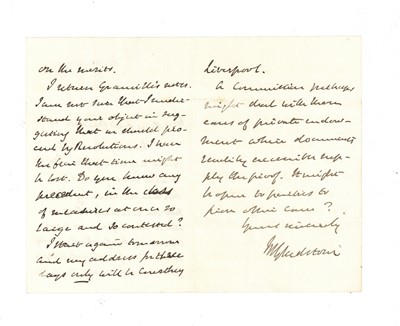 on the merits.
I return Granville's notes.
I am not sure that I under-
stand your object in sug-
gesting that we should pro-
ceed by Resolutions. I have
the fear that time might
be lost. Do you know any
precedent, in the class
of measures at once so
large and so contested?
I start again tomorrow
and my address for three
days only will be Courthey
Liverpool.
A Committee perhaps
might deal with those
cases of private endow-
ment where documents
readily accessible sup-
ply the proof. It might
be open to parties to
prove their case?
Yours sincerely
WEGladstone